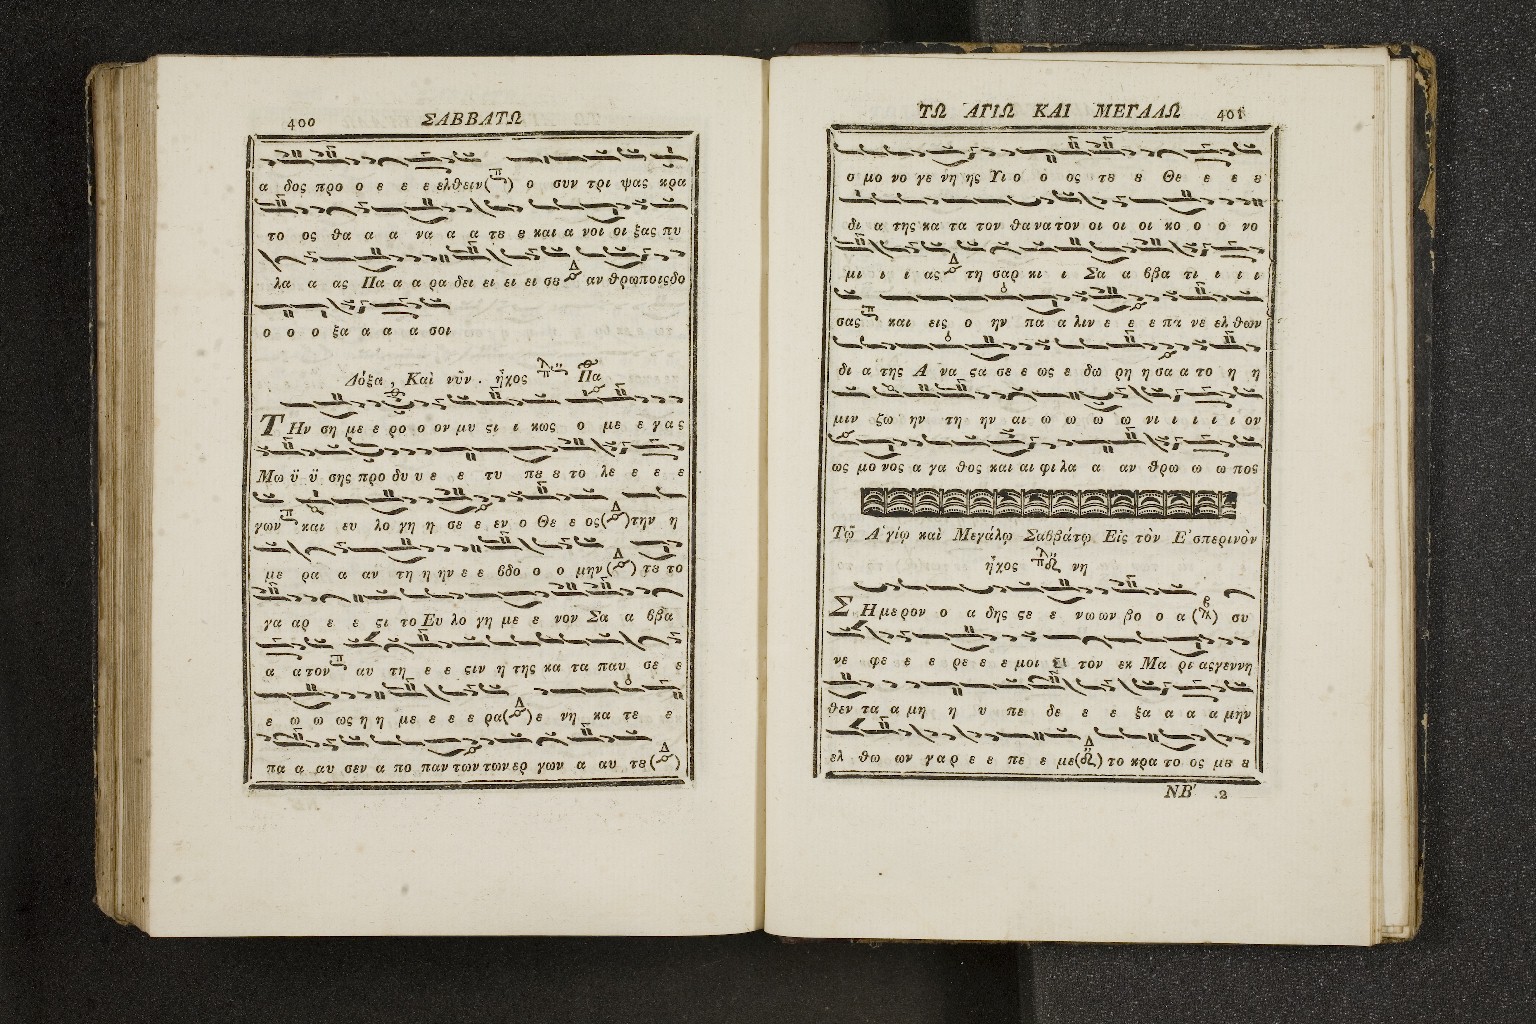 400 ΣΑΒΒΑΤΩ
α δος προ ο ε ε ε ελθειν( ) ο συν τρι ψας κρα
το ος θα α α να α α τȣ ȣ και α νοι οι ξας πυ
λα α ας Πα α α ρα δει ει ει ει σȣ αν θρωποιςδο
ο ο ο ξα α α α σοι
Δόξα, Καὶ νῦν. ἦχος Πα
ΤΗν ση με ε ρο ο ον μυ ςι ι κως ο με ε γας
Μω ϋ ϋ σης προ δυ υ ε ε τυ πȣ ȣ το λε ε ε ε
γων και ευ λο γη η σε ε εν ο Θε ε ος( )την η
με ρα α αν τη η ην ε ε βδο ο ο μην( ) τȣ το
γα αρ ε ε ςι το Ευ λο γη με ε νον Σα α ββα
α α τον αυ τη ε ε ςιν η της κα τα παυ σε ε
ε ω ω ως η η με ε ε ε ρα( )ε νη κα τε ε
πα α αυ σεν α πο παν των των ερ γων α αυ τȣ( )
ΤΩ ΑΓΙΩ ΚΑΙ ΜΕΓΑΛΩ 401
ο μο νο γε νη ης Υι ο ο ος τȣ ȣ Θε ε ε ȣ
δι α της κα τα τον θα να τον οι οι οι κο ο ο νο
μι ι ι ας τη σαρ κι ι Σα α ββα τι ι ι ι
σας και εις ο ην πα α λιν ε ε ε πα νε ελ θων
δι α της Α να ςα σε ε ως ε δω ρη η σα α το η η
μιν ζω ην τη ην αι ω ω ω ω νι ι ι ι ι ον
ως μο νος α γα θος και αι φι λα α αν θρω ω ω πος
Τῷ Ἁγίῳ καὶ Μεγάλῳ Σαββάτῳ Εἰς τὸν Ἑσπερινὸν
ἦχος νη
ΣΗμερον ο α δης ςε ε νω ων βο ο α( ) συ
νε φε ε ε ρε ε ε μοι ει τον εκ Μα ρι αςγεννη
θεν τα α μη η υ πε δε ε ε ξα α α α μην
ελ θω ων γαρ ε ε πε ε με( ) το κρα το ος μȣ ȣ
ΝΒ′ .2